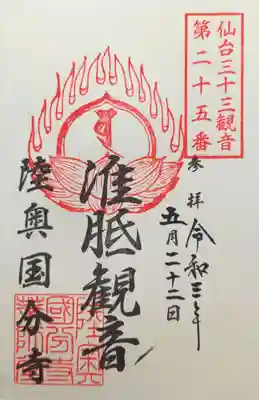 仙台三十三観音
第二十五番
奉拝
令和三年
五月二十二日
准胝観音
陸奥国分寺